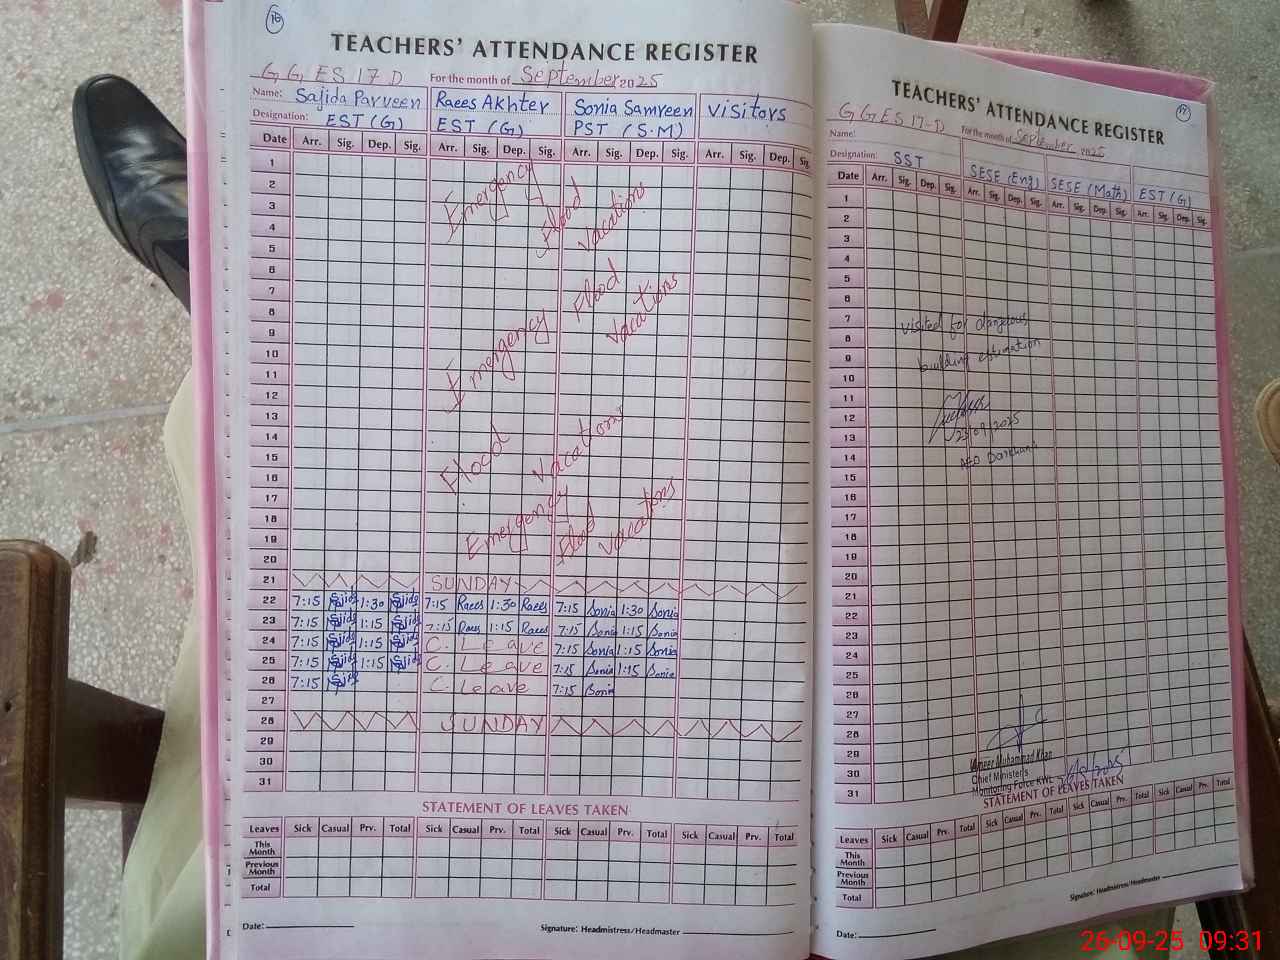 16
TEACHERS' ATTENDANCE REGISTER
G G E S 17 D For the month of September 2025
Name: Sajida Parveen Raees Akhter Sonia Samreen Visitors
Designation: EST (G) EST (G) PST (S.M)
Date Arr. Sig. Dep. Sig. Arr. Sig. Dep. Sig. Arr. Sig. Dep. Sig. Arr. Sig. Dep. Sig.
1
2
3
4
5
6
7
8
9
10
11
12
13
14
15
16
17
18
19
20
Emergency Flood Vacations
Emergency Flood Vacations
Flood Vacations
Emergency Flood Vacations
21 SUNDAY
22 7:15 Sajida 1:30 Sajida 7:15 Raees 1:30 Raees 7:15 Sonia 1:30 Sonia
23 7:15 Sajida 1:15 Sajida 7:15 Raees 1:15 Raees 7:15 Sonia 1:15 Sonia
24 7:15 Sajida 1:15 Sajida C. Leave 7:15 Sonia 1:15 Sonia
25 7:15 Sajida 1:15 Sajida C. Leave 7:15 Sonia 1:15 Sonia
26 7:15 Sajida C. Leave 7:15 Sonia
27
28 SUNDAY
29
30
31
STATEMENT OF LEAVES TAKEN
Leaves Sick Casual Prv. Total Sick Casual Prv. Total Sick Casual Prv. Total Sick Casual Prv. Total
This Month
Previous Month
Total
Date: Signature: Headmistress/Headmaster
17
TEACHERS' ATTENDANCE REGISTER
G G E S 17-D For the month of September 2025
Name:
Designation: SST SESE (Eng) SESE (Math) EST (G)
Date Arr. Sig. Dep. Sig. Arr. Sig. Dep. Sig. Arr. Sig. Dep. Sig. Arr. Sig. Dep. Sig.
1
2
3
4
5
6
7
8
9
10
11
12
13
14
15
16
17
18
19
20
21
22
23
24
25
26
27
28
29
30
31
visited for dangerous
building estimation
23/09/2025
AEO Darkhana
Muneer Muhammad Khan
Chief Minister's
Monitoring Force KWL
STATEMENT OF LEAVES TAKEN
Leaves Sick Casual Prv. Total Sick Casual Prv. Total Sick Casual Prv. Total Sick Casual Prv. Total
This Month
Previous Month
Total
Date: Signature: Headmistress/Headmaster
26-09-25 09:31